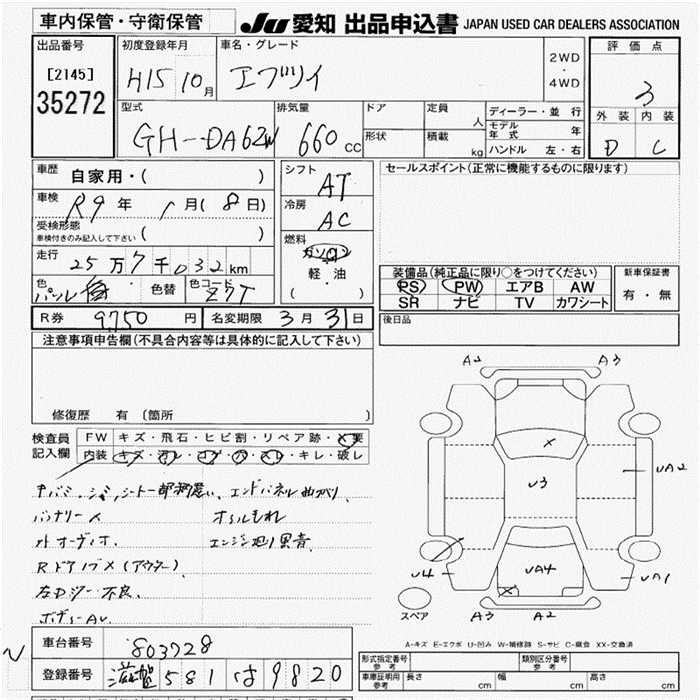 車内保管・守衛保管
JU 愛知 出品申込書 JAPAN USED CAR DEALERS ASSOCIATION
出品番号
[2145]
35272
初度登録年月
H15 10月
車名・グレード
エブリイ
2WD
・
4WD
評価点
3
外装 内装
D C
型式
GH-DA62W
排気量
660 CC
ドア
形状
定員
人
積載
kg
ディーラー・並行
モデル年式 年
ハンドル 左・右
車歴
自家用・( )
車検
R9年 1月(8日)
受検形態
車検付きのみ記入して下さい ( )
走行
25万7千032km
色
パール白
色替
色コード
Z7T
シフト
AT
冷房
AC
燃料
ガソリン
軽・油
( )
セールスポイント(正常に機能するものに限ります)
装備品(純正品に限り○をつけてください)
PS PW エアB AW
SR ナビ TV カワシート
新車保証書
有・無
R券 9750 円
名変期限 3月31日
後日品
注意事項申告欄(不具合内容等は具体的に記入して下さい)
修復歴 有 (箇所
検査員
記入欄
FW キズ・飛石・ヒビ割・リペア跡・X要
内装 キズ・汚レ・コゲ・穴・スレ・キレ・破レ
キバミ、シミ、シート一部 エンドパネル曲がり
バッテリー人
オイルもれ
外オーディオ
エンジン廻り異音
Rドアノブ×(アウター)
左Dジー不良
ボディーAU
A2 A3
X
U3
UA2
UA4
U4
UA1
X
A3 A2
スペア
A-キズ E-エクボ U-凹み W-補修跡 S-サビ C-腐食 XX-交換済
車台番号
803728
登録番号
滋賀 581 は 9820
形式指定番号
参考
類別区分番号
参考
車庫証明用
参考
長さ cm 幅 cm 高さ cm